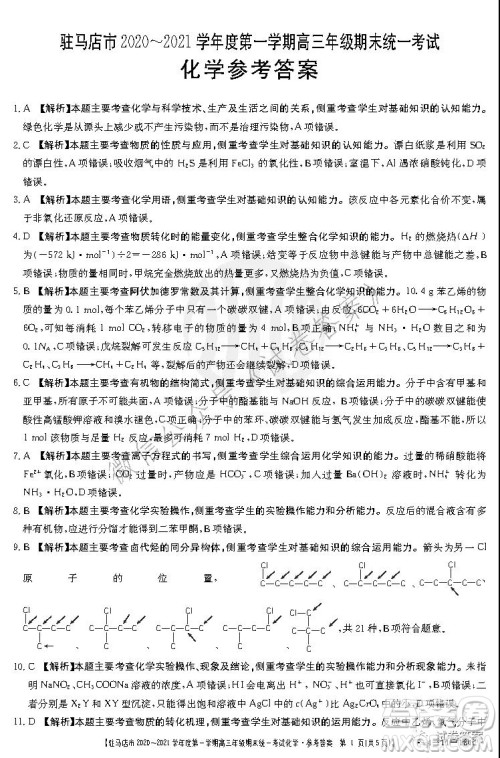 驻马店市2020～2021学年度第一学期高三年级期末统一考试
化学参考答案
1. A 【解析】本题主要考查化学与科学技术、生产及生活之间的关系,侧重考查学生对基础知识的认知能力。
绿色化学是从源头上减少或不产生污染物,而不是治理污染物,A项符合题意。
2. C 【解析】本题主要考查物质的性质与应用,侧重考查学生对基础知识的认知能力。漂白纸浆是利用SO₂
的漂白性,A项错误;吸收烟气中的H₂S是利用FeCl₃的氧化性,B项错误;室温下,Al遇浓硝酸钝化,D项
错误。
3. A 【解析】本题主要考查化学用语,侧重考查学生对基础知识的认知能力。该反应中各元素化合价不变,属
于非氧化还原反应,A项错误。
4. D 【解析】本题主要考查物质转化时的能量变化,侧重考查学生整合化学知识的能力。H₂的燃烧热(ΔH)
为(-572 kJ·mol⁻¹)÷2=-286 kJ·mol⁻¹,A项错误;
物的能量,B项错误;相同质量时,甲烷完全燃烧放出的热量更多,C项错误。
5. B 【解析】本题主要考查阿伏加德罗常数及其计算,侧重考查学生整合化学知识的能力。10.4 g苯乙烯的物
质的量为0.1 mol,每个苯乙烯分子中只有一个碳碳双键,A项错误;由反应6CO₂+6H₂O══C₆H₁₂O₆+
6O₂,可知每消耗1 mol CO₂,转移电子的物质的量为4 mol,B项正确;
0.1N_A,C项错误;戊烷裂解可发生反应C₅H₁₂──C₂H₄+C₃H₈、C₅H₁₂──C₂H₆+C₃H₆、C₅H₁₂──C₃H₈+
C₂H₄、C₅H₁₂──CH₄+C₄H₈等,裂解后的产物还可继续裂解,D项错误。
6. C 【解析】本题主要考查有机物的结构简式,侧重考查学生对基础知识的综合运用能力。分子中含有甲基和
亚甲基,所有原子不可能共平面,A项正确;分子中的酯基能与NaOH反应,B项正确;碳碳双键能使
酸性高锰酸钾溶液和溴水褪色,D项正确;分子中的苯环和碳碳双键能与氢气发生加成反应,酯基不能,所以
1 mol该物质与足量H₂反应,
7. A 【解析】本题主要考查离子方程式的书写,侧重考查学生综合运用化学知识的能力。过量的稀硝酸能将
Fe²⁺氧化,B项错误;CO₂过量时,产物应是HCO₃⁻,C项错误;
NH₃·H₂O,D项错误。
8. B 【解析】本题主要考查化学实验,侧重考查学生的实验操作能力和实验分析能力。反应后的
能进行分馏才能得到二苯甲酮,B项错误。
9. B 【解析】本题主要考查卤代烃的同分异构体,侧重考查学生对基础知识的综合运用能力。箭头为另一个
原子的位置,
Cl
C
,共21种,B项符合题意。
10. C 【解析】本题主要考查化学实验操作、现象及结论,侧重考查学生的实验操作能力和分析现象能力。未指
明NaNO₂、CH₃COONa溶液的浓度,A项错误;HI会电离出H⁺,
应,B项错误;
11. D
【驻马店市2020～2021学年度第一学期高三年级期末统一考试化学·参考答案 第1页(共5页)】
微信公众号《试卷答案》